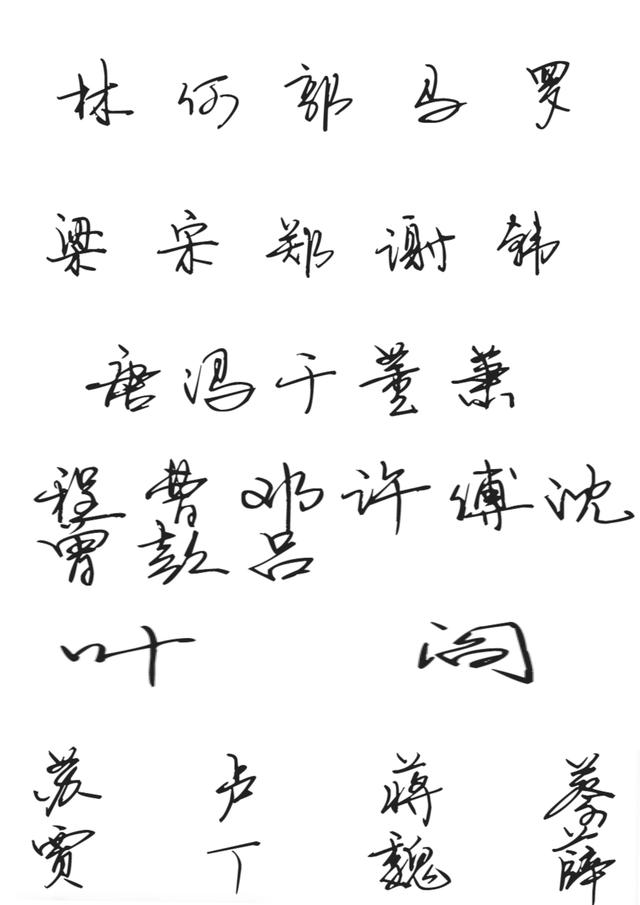 林 何 郭 马 罗
梁 宋 郑 谢 韩
唐 冯 于 董 萧
程 曹 邓 许 傅 沈
曾 彭 吕
叶 阎
苏 卢 蒋 蔡
贾 丁 魏 薛